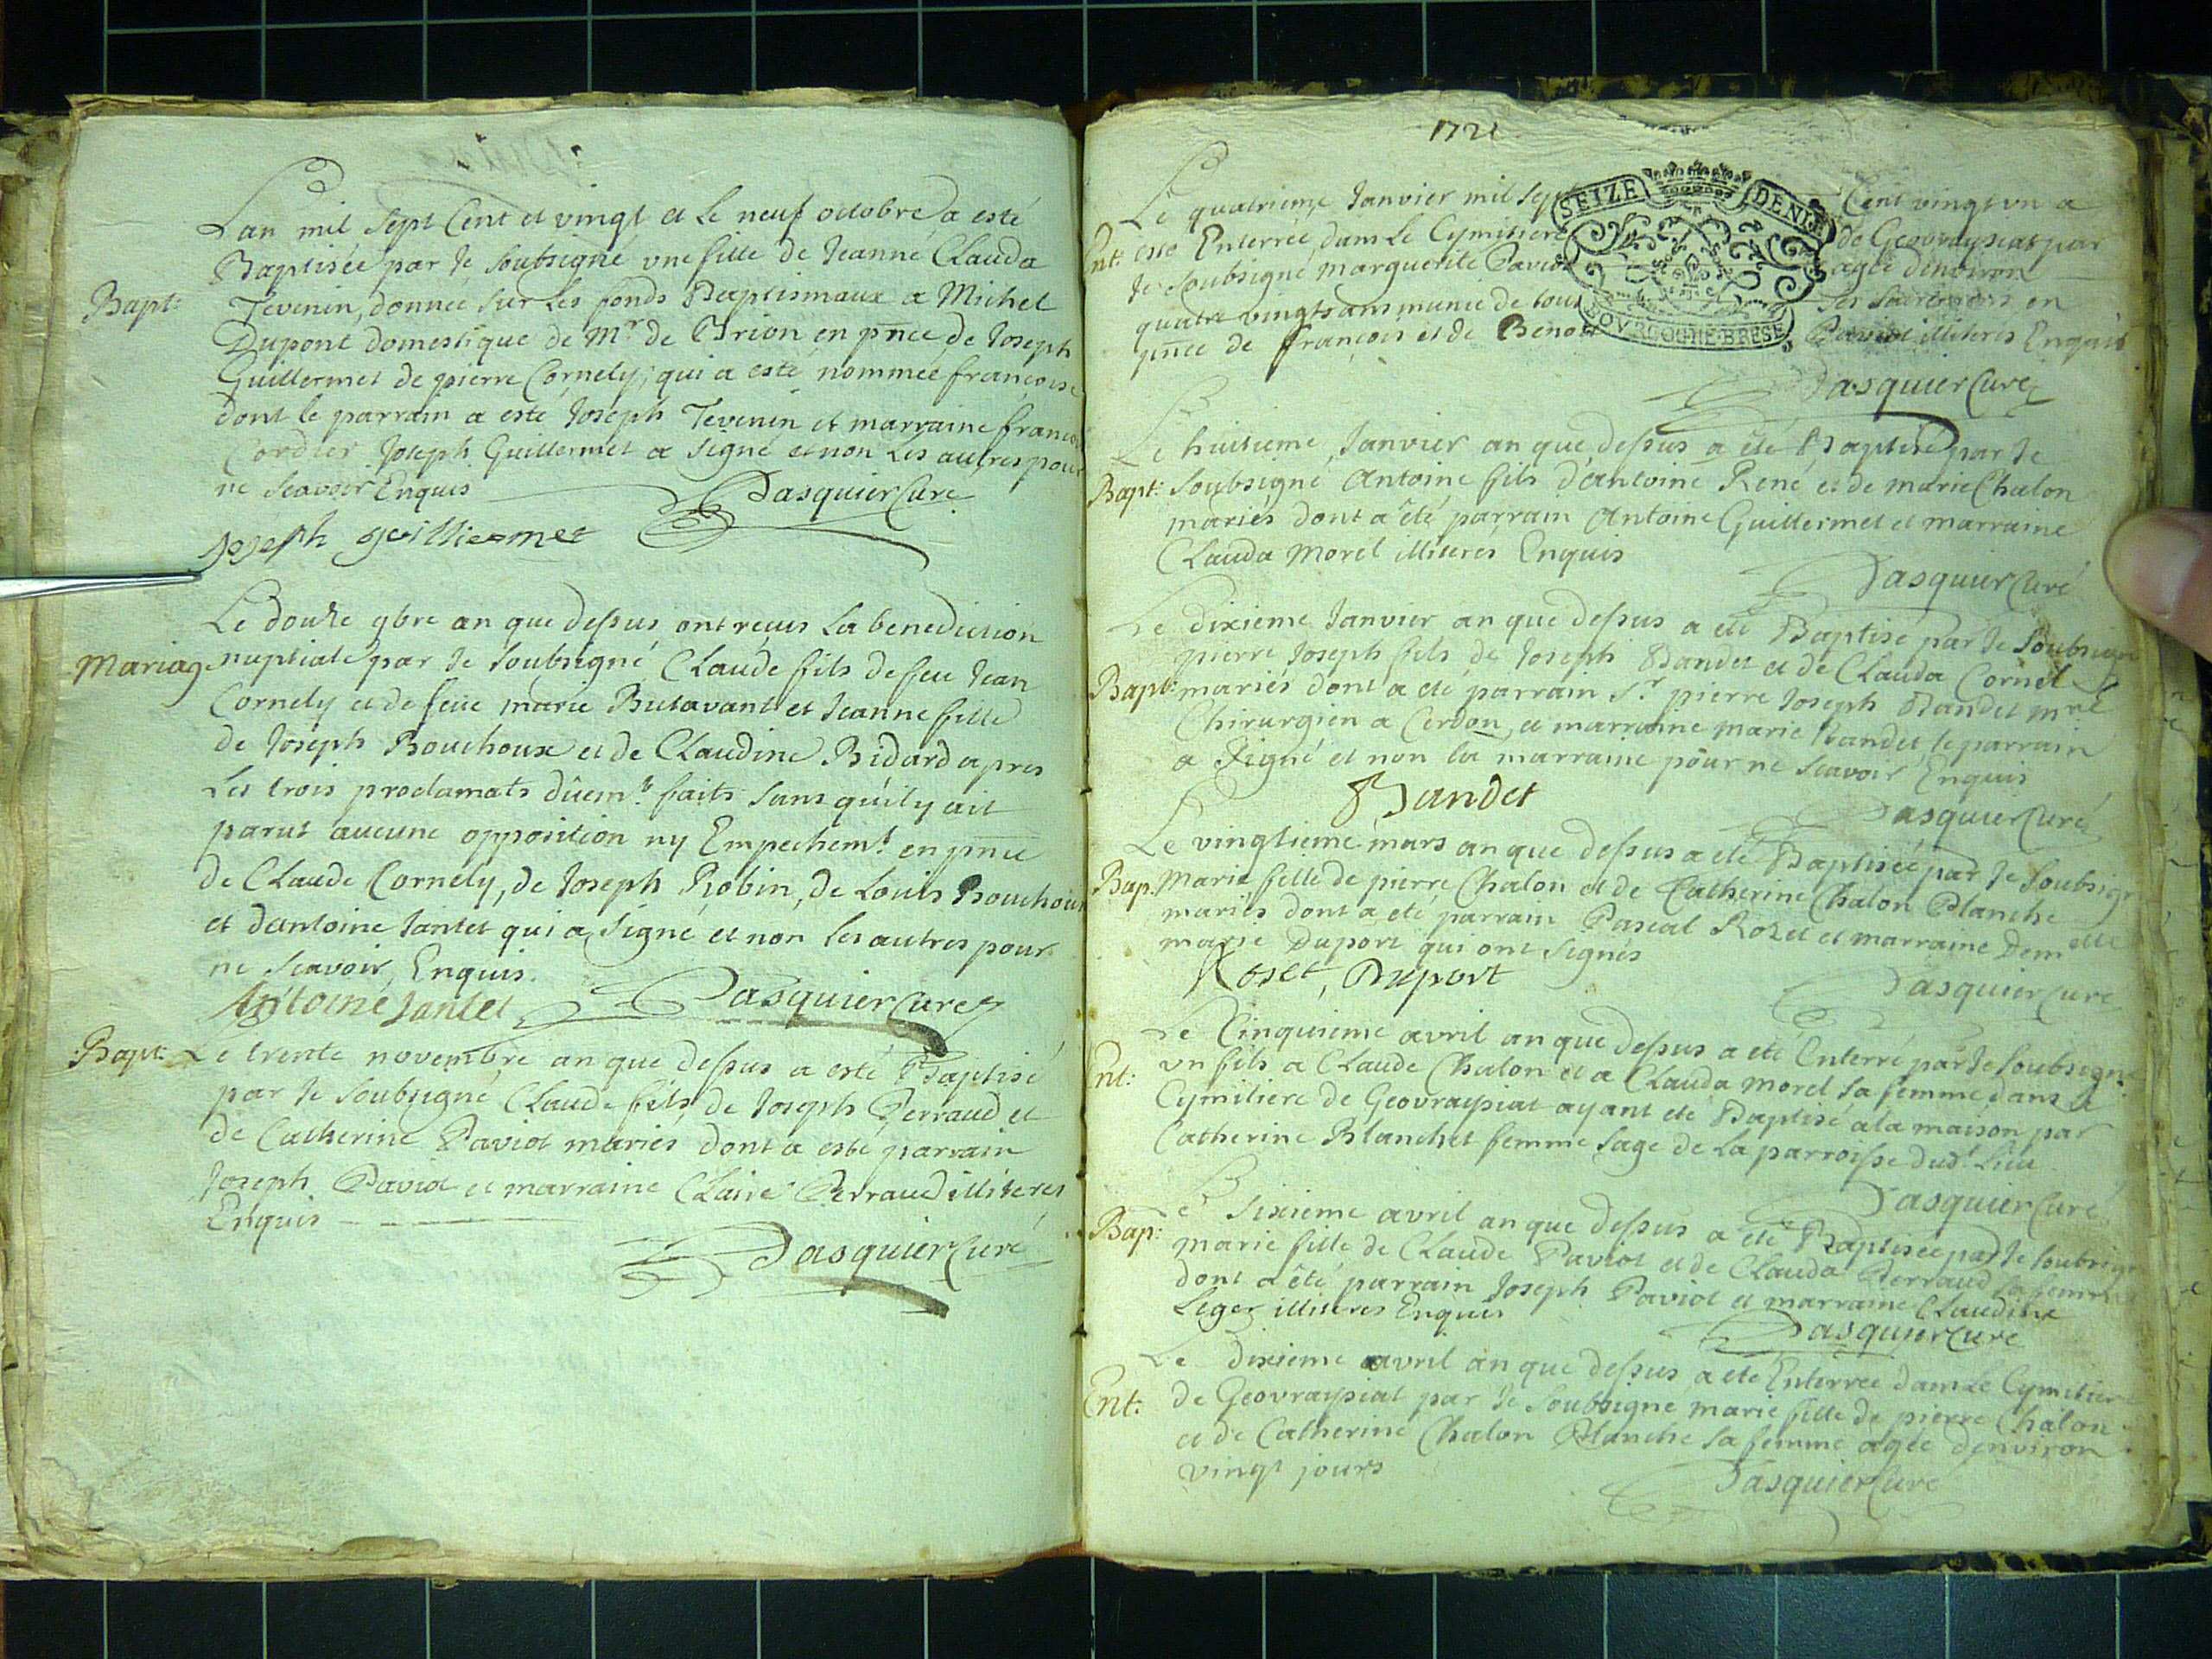 Lan mil sept Cent et vingt et le neuf octobre a esté
Baptisée par Je soubsigné vne fille de Jeanne Clauda
Bapt: Tevenin, donnée sur les fonds Baptismaux a Michel
Dupont domestique de Mr de Brion en pnce de Joseph
Guillermet de pierre Cornely, qui a esté nommée françoise
dont le parrain a esté Joseph Tevenin et marraine françoi
Cordier Joseph Guillermet a signé et non les autres pour
ne scavoir Enquis Pasquier Curé
Joseph guilliermet
Le douze 9bre an que dessus ont recus la benediction
Mariag nuptiale par Je soubsigné Claude fils de feu Jean
Cornely et de feüe marie Butavant et Jeanne fille
de Joseph Bouchoux et de Claudine Bidard apres
les trois proclamats düemt faits sans qu'il y ait
parut aucune opposition ny Empechemt en pnce
de Claude Cornely, de Joseph Robin, de Louis Bouchoux
et dantoine Jantet qui a signé et non les autres pour
ne scavoir, Enquis.
Antoine Jantet Pasquier Curé
Bapt: Le trente novembre an que dessus a esté Baptisé
par Je soubsigné Claude fils de Joseph Perraud et
de Catherine Paviot mariés dont a esté parrain
Joseph Paviot et marraine Claire Perraud illiteres
Enquis
Pasquier Curé
1721
Le quatrieme Janvier mil sept Cent vingt vn a
Ent: esté Enterrée dans le Cymitiere de Geovraysiat par
Je soubsigné marguerite Paviot agée d'environ
quatre vingts ans munie de tous ses sacremens en
pnce de françois et de Benoit Paviot illiteres Enquis
SEIZE DENIERS
BOVRGOGNE·BRESSE
Pasquier Curé
Le huitieme Janvier an que dessus a été Baptisé par Je
Bapt: soubsigné Antoine fils d'antoine René et de marie Chalon
mariés dont a été parrain Antoine Guillermet et marraine
Clauda Morel illiteres Enquis
Pasquier Curé
Le dixieme Janvier an que dessus a eté Baptisé par Je soubsigné
pierre Joseph fils de Joseph Bandet et de Clauda Cornel
Bapt: mariés dont a eté parrain Sr pierre Joseph Bandet mre
Chirurgien a Cerdon, et marraine marie Bandet le parrain
a signé et non la marraine pour ne scavoir Enquis
Bandet
Pasquier Curé
Le vingtieme mars an que dessus a eté Baptisée par Je soubsigné
Bap. Marie fille de pierre Chalon et de Catherine Chalon Blanche
mariés dont a eté parrain Pascal Rozet et marraine Demelle
marie Duport qui ont signés
Roset, Duport
Pasquier Curé
Le Cinquieme avril an que dessus a eté Enterré par Je soubsigné
Ent: vn fils a Claude Chalon et a Clauda morel sa femme dans le
Cymitiere de Geovraysiat ayant eté Baptisé a la maison par
Catherine Blanchet femme sage de la parroisse dudt lieu
Pasquier Curé
Le Sixieme avril an que dessus a eté Baptisée par Je soubsigné
Bap: marie fille de Claude Paviot et de Clauda Perraud sa femme
dont a été parrain Joseph Paviot et marraine Claudine
Leger illiteres Enquis
Pasquier Curé
Le dixieme avril an que dessus a eté Enterrée dans le Cymitiere
Ent: de Geovraysiat par Je soubsigné marie fille de pierre Chalon
et de Catherine Chalon Blanche sa femme agée denviron
vingt jours
Pasquier Curé